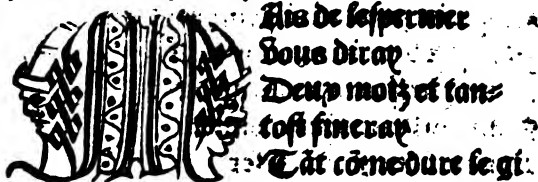 MAis de lesperuier
Vous diray
Deux motz et tan=
tost fineray
Tāt cōme dure le gi